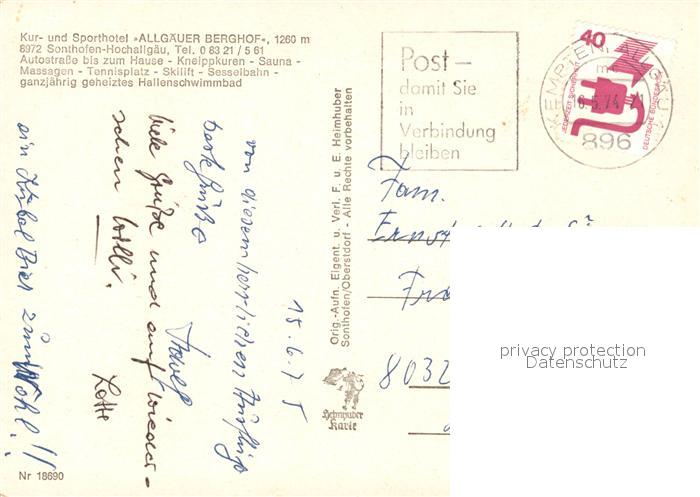 Kur- und Sporthotel »ALLGÄUER BERGHOF«, 1260 m
8972 Sonthofen-Hochallgäu, Tel. 0 83 21 / 5 61
Autostraße bis zum Hause - Kneippkuren - Sauna -
Massagen - Tennisplatz - Skilift - Sesselbahn -
ganzjährig geheiztes Hallenschwimmbad
Post —
damit Sie
in
Verbindung
bleiben
40
JEDERZEIT SICHERHEIT
DEUTSCHE BUNDESPOST
KEMPTEN, ALLGÄU 1
896
15.6.75
von diesem herrlichen Ausflug
beste Grüße
viele Grüße und auf Wieder-
sehen Willi.
Lotte
ein Kübel Bier zum
Wohl!!
Orig.-Aufn. Eigent. u. Verl. F. u. E. Heimhuber
Sonthofen/Oberstdorf - Alle Rechte vorbehalten
Heimhuber
Karte
Fam.
8032
privacy protection
Datenschutz
Nr 18690